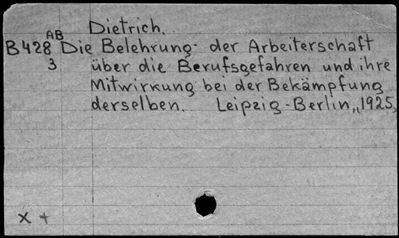 Dietrich.
AB
B428 Die Belehrung der Arbeiterschaft
3 über die Berufsgefahren und ihre
Mitwirkung bei der Bekämpfung
derselben. Leipzig-Berlin, 1925,
x +